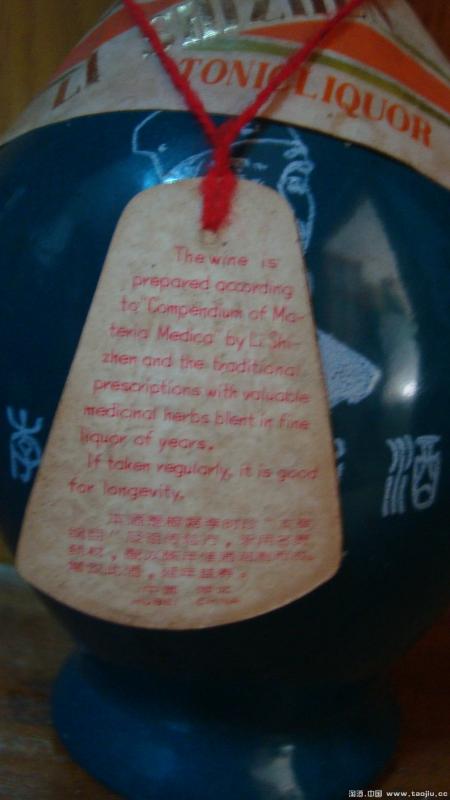 LI SHIZHEN
TONIC LIQUOR
The wine is
prepared according
to "Compendium of Ma-
teria Medica" by Li Shi-
zhen and the traditional
prescriptions with valuable
medicinal herbs blent in fine
liquor of years.
If taken regularly, it is good
for longevity.
本酒是根据李时珍"本草
纲目"及祖传秘方，采用名贵
药材，
常饮此酒，延年益寿。
中国 湖北
HUBEI CHINA
酒
淘酒.中国 www.taojiu.cc